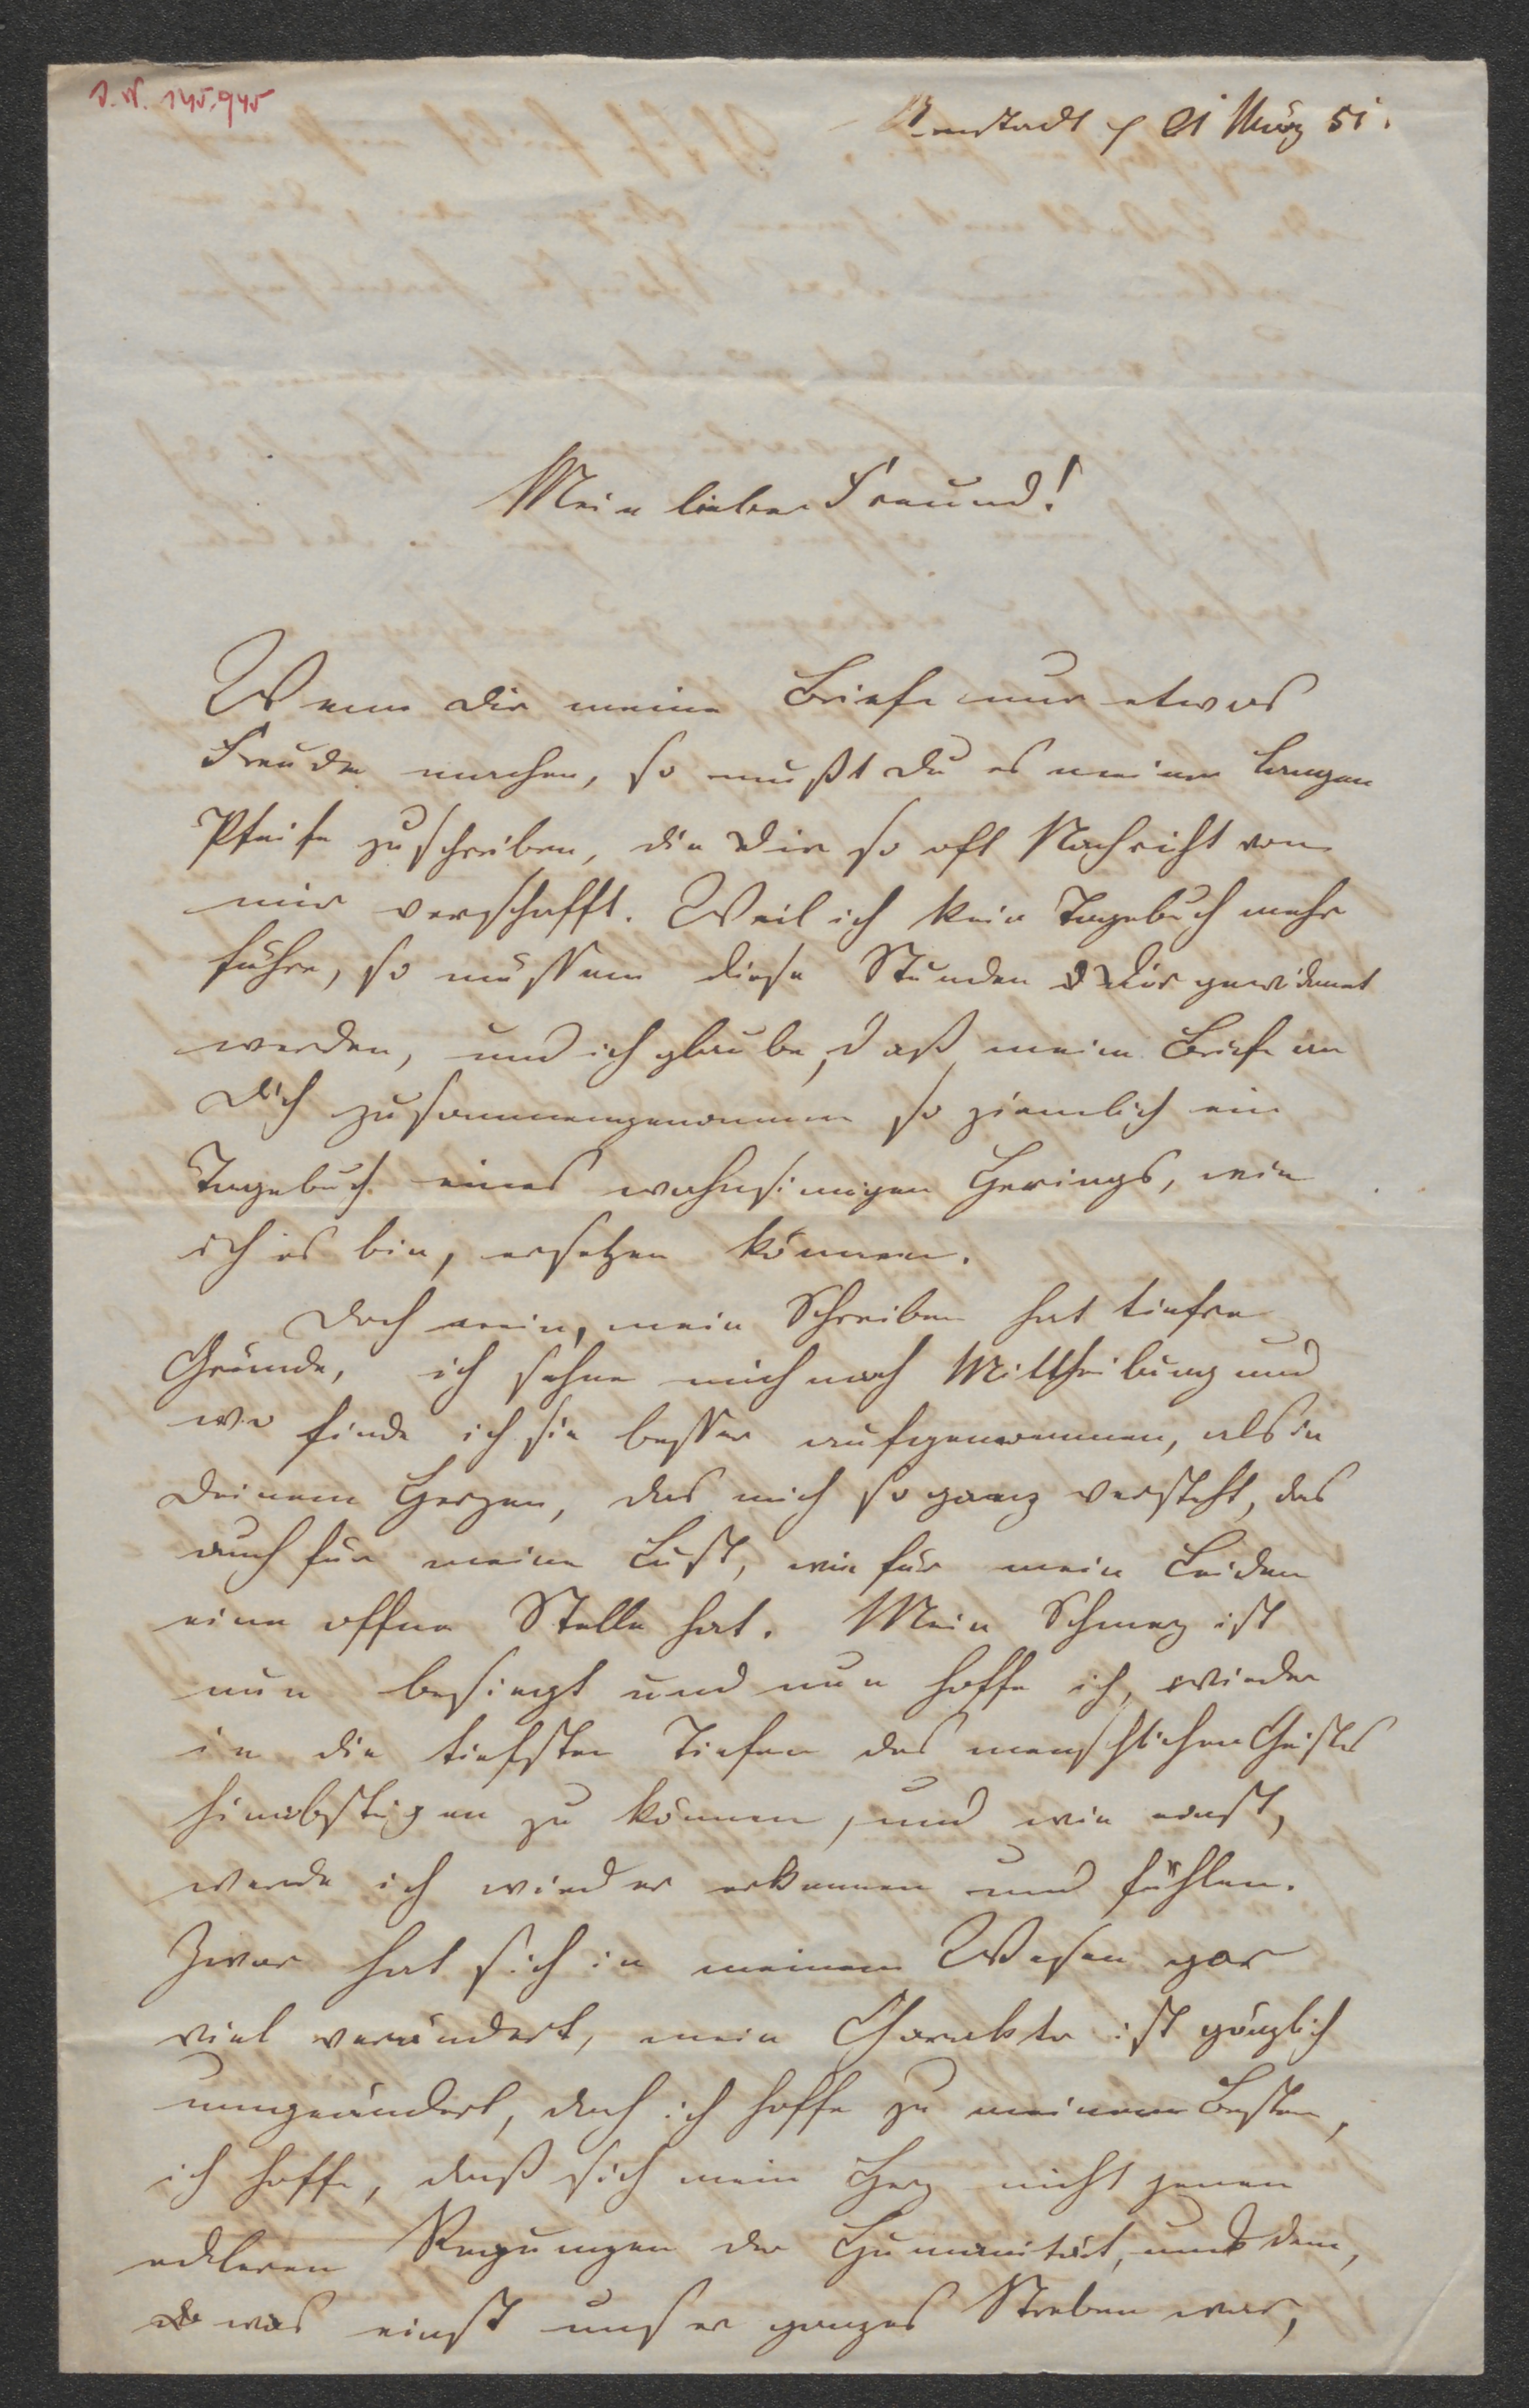 J. N. 145.945
21 März 51.
Mein lieber Freund!
Wenn dir meine Briefe nur etwas
Freude machen, so mußt du es meiner langen
Pfeife zuschreiben, die Dir so oft Nachricht von
mir verschafft. Weil ich kein Tagebuch mehr
führe, so müssen diese Stunden Dir gewidmet
werden, und ich glaube, daß meine Briefe an
Dich zusammengenommen so ziemlich ein
Tagebuch eines wahnsinnigen Herings, wie
ich es bin, ersetzen können.
Doch nein, mein Schreiben hat tiefre
Gründe, ich sehne mich nach Mittheilung und
wo finde ich sie besser aufgenommen, als in
Deinem Herzen, das mich so ganz versteht, das
auch für meine Lust, wie für mein Leiden
eine offne Stelle hat. Mein Schmerz ist
nun besiegt und nun hoffe ich, wieder
in die tiefsten Tiefen des menschlichen Geistes
hinabsteigen zu können, und wie einst,
werde ich wieder erkennen und fühlen.
Zwar hat sich in meinem Wesen gar
viel verändert, mein Charakter ist gänzlich
umgeändert, doch ich hoffe zu meinem Besten,
ich hoffe, daß sich mein Herz nicht jenen
edleren Regungen der Humanität, und dem,
was einst unser ganzes Streben war,